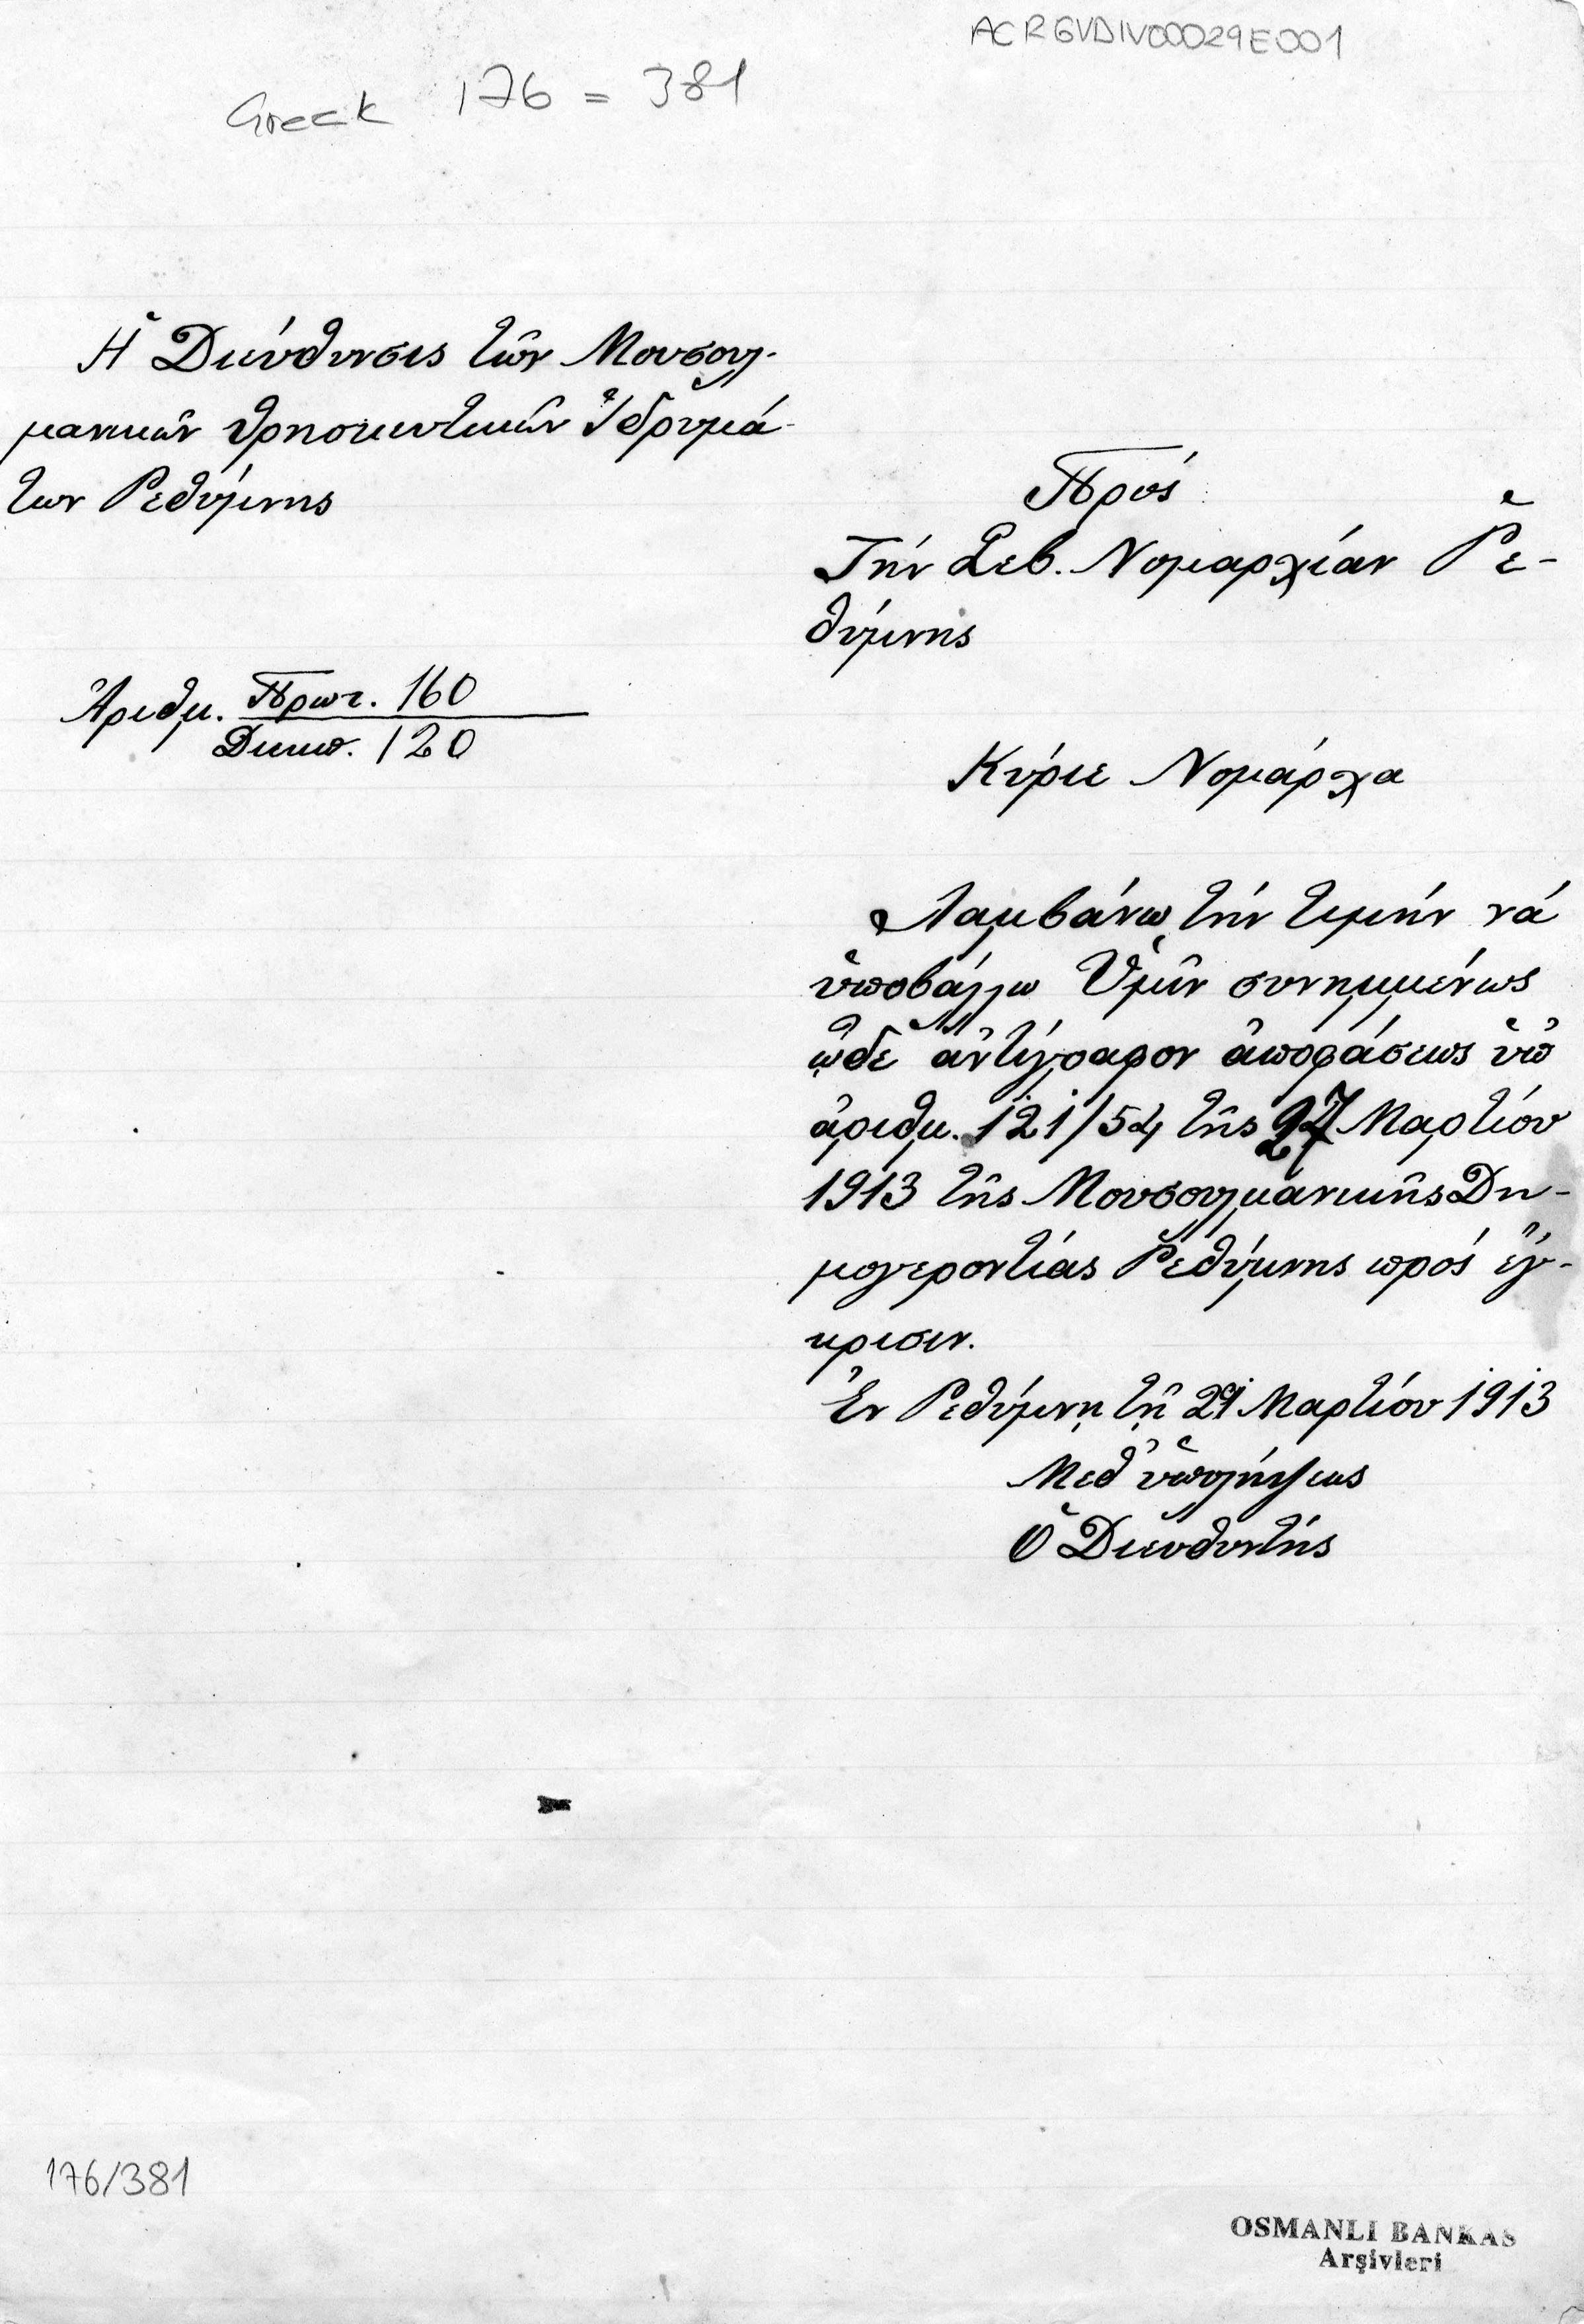 ACRGVDIV00029E001
Greek 176 = 381
Ἡ Διεύθυνσις τῶν Μουσουλ-
μανικῶν θρησκευτικῶν Ἱδρυμά-
των Ρεθύμνης
Πρός
Τήν Σεβ. Νομαρχίαν Ῥε-
θύμνης
Ἀριθμ. Πρωτ. 160
Διεκπ. 120
Κύριε Νομάρχα
Λαμβάνω τήν τιμήν νά
ὑποβάλλω Ὑμῖν συνημμένως
ᾧδε ἀντίγραφον ἀποφάσεως ὑπ'
ἀριθμ. 121/54 τῆς 27 Μαρτίου
1913 τῆς Μουσουλμανικῆς Δη-
μογεροντίας Ρεθύμνης πρός ἔγ-
κρισιν.
Ἐν Ρεθύμνῃ τῇ Μαρτίου 1913
Μεθ' ὑπολήψεως
Ὁ Διευθυντής
176/381
OSMANLI BANKAS
Arşivleri